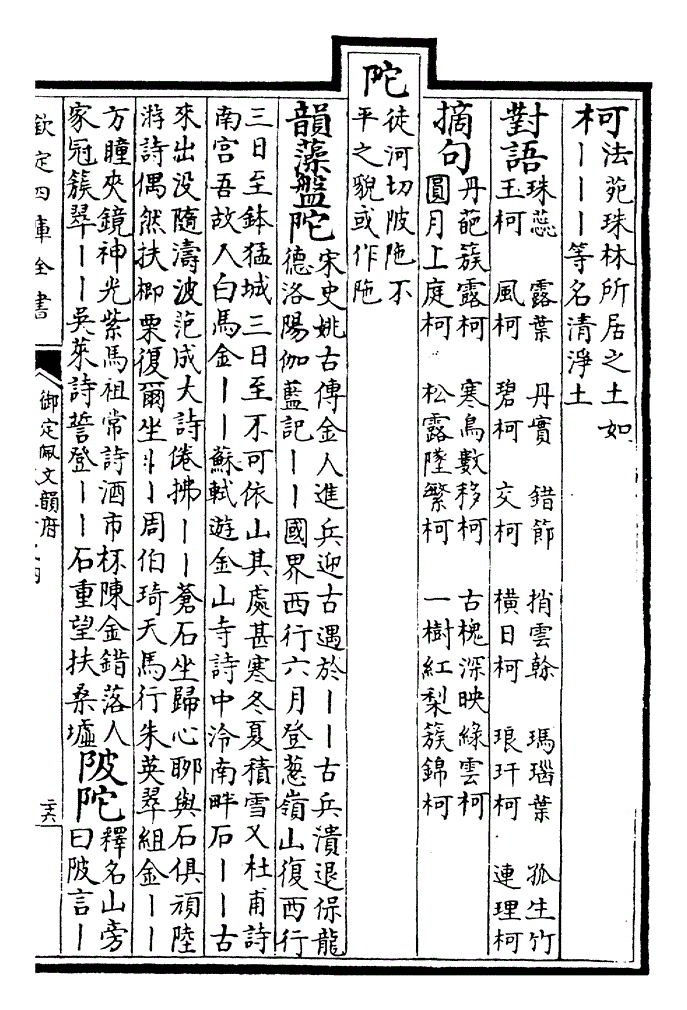 柯 法苑珠林所居之土如
丨丨丨等名清淨土
對語 珠蕊 露葉 丹實 錯節 捎雲榦 瑪瑙葉 孤生竹
玉柯 風柯 碧柯 交柯 橫日柯 琅玕柯 連理柯
摘句 丹葩簇露柯 寒鳥數移柯 古槐深映綠雲柯
圓月上庭柯 松露墜繁柯 一樹紅梨簇錦柯
陀
徒河切陂陁不
平之貌或作陁
韻藻盤陀 宋史姚古傳金人進兵迎古遇於丨丨古兵潰退保龍
德洛陽伽藍記丨丨國界西行六月登葱嶺山復西行
三日至鉢猛城三日至不可依山其處甚寒冬夏積雪又杜甫詩
南宫吾故人白馬金丨丨蘇軾遊金山寺詩中泠南畔石丨丨古
來出没隨濤波范成大詩倦拂丨丨蒼石坐歸心聊與石俱頑陸
游詩偶然扶楖栗復爾坐丨丨周伯琦天馬行朱英翠組金丨丨
方瞳夾鏡神光紫馬祖常詩酒市杯陳金錯落人
家冠簇翠丨丨吳萊詩誓登丨丨石重望扶桑墟
陂陀 釋名山旁
曰陂言丨
欽定四庫全書
御定佩文韻府
二十六